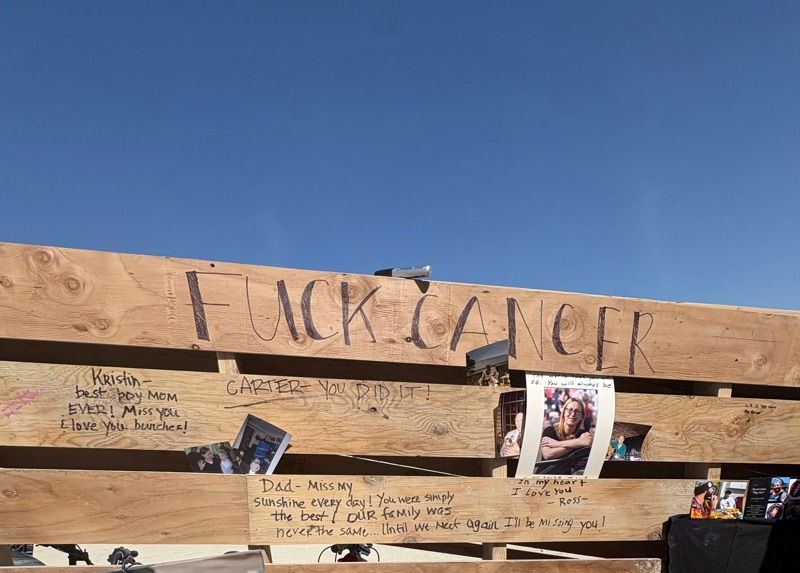 FUCK CANCER
Kristin-
best boy MOM
EVER! Miss you
& love you bunches!
CARTER- YOU DID IT!
56. You will always be
In my heart
I Love You
- Ross-
Dad- Miss my
sunshine every day! You were simply
the best! OUR family was
never the same... Until we meet again I'll be missing you!